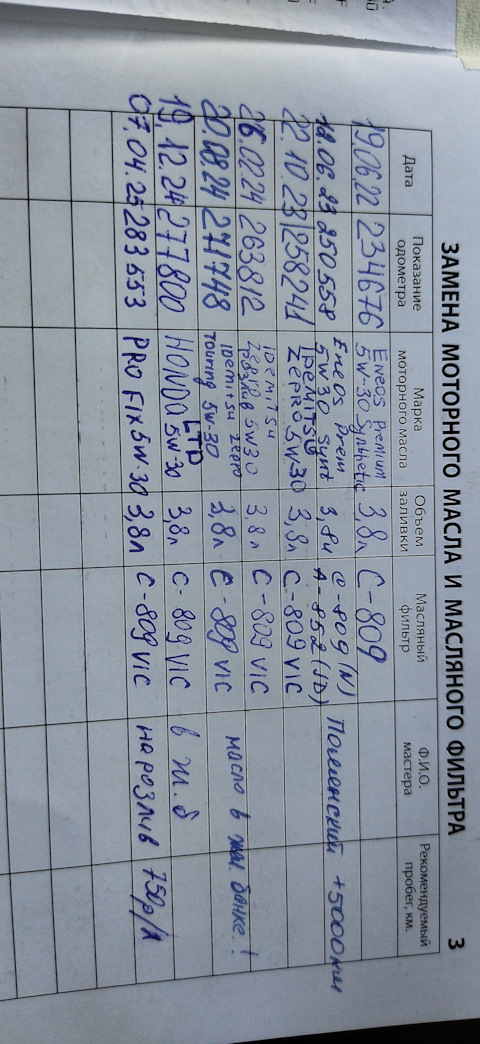 ЗАМЕНА МОТОРНОГО МАСЛА И МАСЛЯНОГО ФИЛЬТРА 3
Дата Показание одометра Марка моторного масла Объем заливки Масляный фильтр Ф.И.О. мастера Рекомендуемый пробег, км.
19.06.22 234676 Eneos Premium 5W-30 Synthetic 3,8л C-809
250558 Eneos Prem 5W30 Synt 3,8л C-809 (N) A-852 (JD) +5000км
22.10.23 258241 IDEMITSU ZEPRO 5W-30 3,8л C-809 VIC
26.02.24 263812 IDEMITSU 5W30 3,8л C-809 VIC
20.08.24 271748 IDEMITSU Zepro Touring 5W-30 3,8л C-809 VIC масло в жел. банке!
19.12.24 277800 HONDA LTD 5W30 3,8л C-809 VIC в ж.б
07.04.25 283553 PRO FIX 5W-30 3,8л C-809 VIC на розлив 750р/л